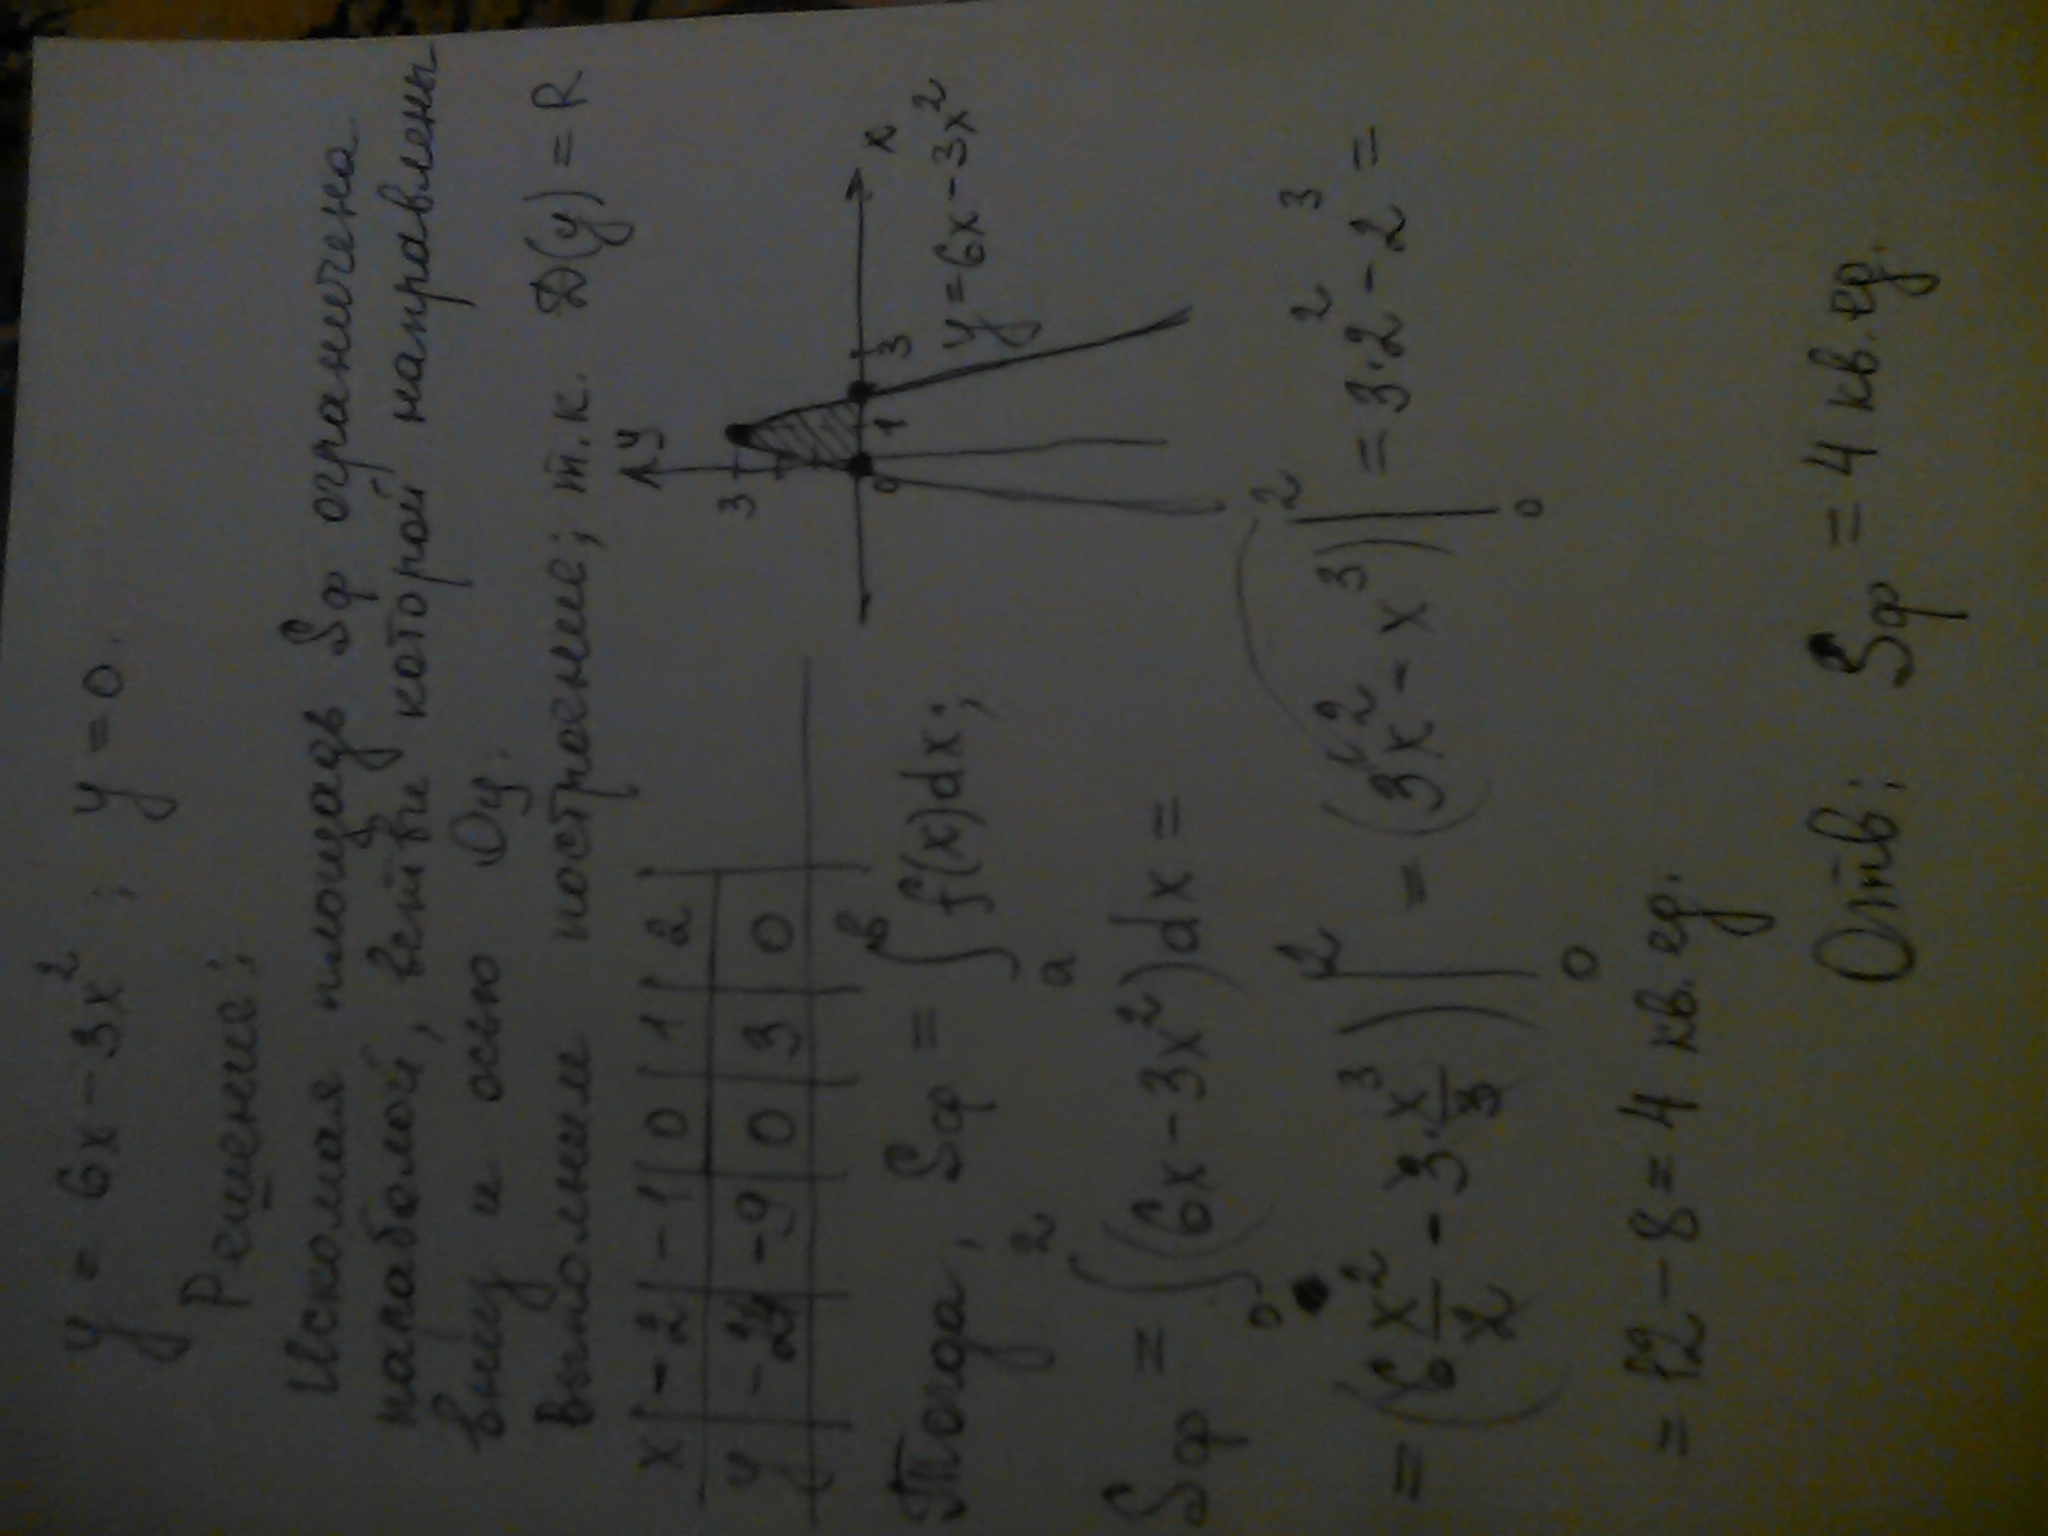 y = 6x - 3x²; y = 0.
Решение;
Искомая площадь Sф ограничена
параболой, ветви которой направлены
вниз и осью Oy.
Выполним построение; т.к. D(y) = R
x | -2 | -1 | 0 | 1 | 2
y | -24 | -9 | 0 | 3 | 0
y
3
0 1 3 x
y = 6x - 3x²
Тогда, Sф = ∫ₐᵇ f(x)dx;
Sф = ∫₀² (6x - 3x²)dx =
= (6 x²/2 - 3·x³/3)|₀² = (3x² - x³)|₀² = 3·2² - 2³ =
= 12 - 8 = 4 кв. ед.
Отв; Sф = 4 кв. ед.